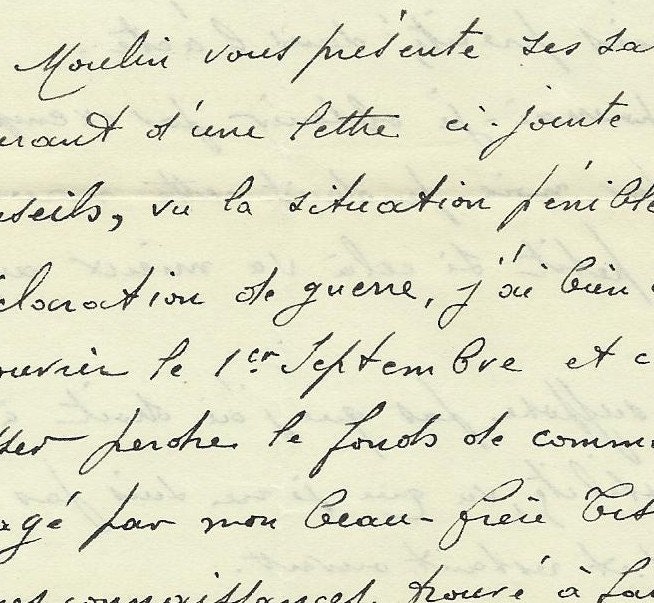 Moulin vous présente ses sa
urant d'une lettre ci-jointe
nseils, vu la situation pénible
claration de guerre, j'ai bien
ouvrir le 1er Septembre et c
sser perdre le fonds de comm
agé par mon beau-frère
es connaissances, trouvé à